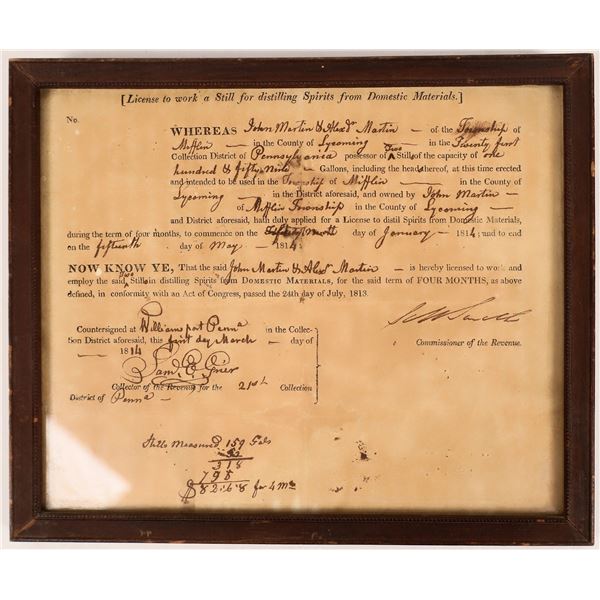 [License to work a Still for distilling Spirits from Domestic Materials.]
No.
WHEREAS John Martin & Alexdr Martin — of the Township of
Mifflin — in the County of Lycoming — in the Twenty first
Collection District of Pennsylvania possessor of Two Still of the capacity of one
hundred & fifty Nine — Gallons, including the head thereof, at this time erected
and intended to be used in the Township of Mifflin — in the County of
Lycoming — in the District aforesaid, and owned by John Martin —
— of Mifflin Township in the County of Lycoming —
and District aforesaid, hath duly applied for a License to distil Spirits from Domestic Materials,
during the term of four months, to commence on the day of January — 1814; and to end
on the fifteenth day of May — 1814:
NOW KNOW YE, That the said John Martin & Alexr Martin — is hereby licensed to work and
employ the said Two Still in distilling Spirits from DOMESTIC MATERIALS, for the said term of FOUR MONTHS, as above
defined, in conformity with an Act of Congress, passed the 24th day of July, 1813.
Countersigned at Williamsport Penna in the Collec-
tion District aforesaid, this first day March — day of
— 1814
Saml E Grier
Collector of the Revenue for the 21st Collection
District of Penna
Commissioner of the Revenue.
Stills Measured 159 Gals
52
318
795
$82.68 for 4 Ms